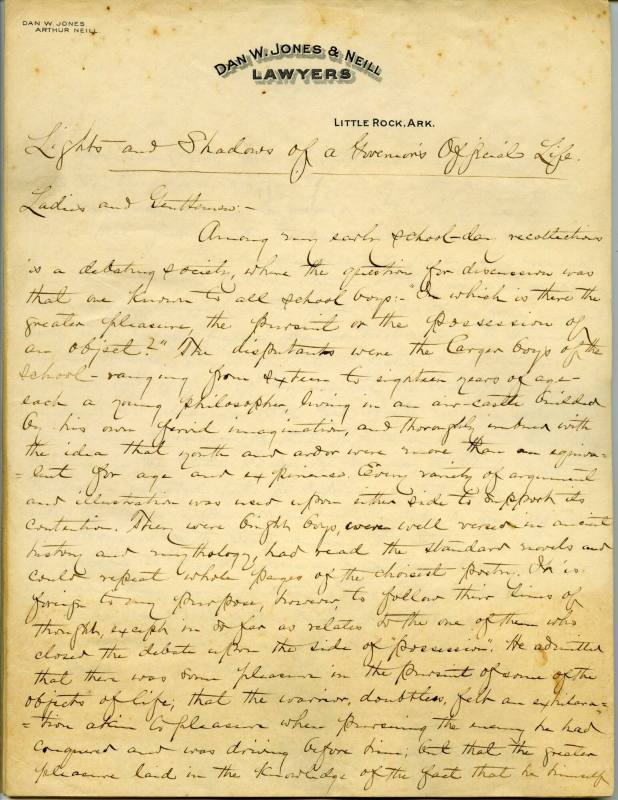 DAN W. JONES
ARTHUR NEILL
DAN W. JONES & NEILL
LAWYERS
LITTLE ROCK, ARK.
Lights and Shadows of a Governor's Official Life.
Ladies and Gentlemen:-
Among my early school-day recollections
is a debating society, where the question for discussion was
that one known to all school boys:- "In which is there the
greater pleasure, the pursuit or the possession of
an object?" The disputants were the larger boys of the
school - ranging from sixteen to eighteen years of age -
each a young philosopher, living in an air-castle builded
by his own fervid imagination, and thoroughly imbued with
the idea that youth and ardor were more than an equiva-
=lent for age and experience. Every variety of argument
and illustration was used upon either side to support its
contention. They were bright boys, were well versed in ancient
history and mythology, had read the standard novels and
could repeat whole pages of the choisest poetry. It is
foreign to my purpose, however, to follow their lines of
thought, except in so far as relates to the one of them who
closed the debate upon the side of "possession". He admitted
that there was some pleasure in the pursuit of some of the
objects of life; that the warrior, doubtless, felt an exhilara-
=tion akin to pleasure when pursuing the enemy he had
conquered and was driving before him; but that the greater
pleasure laid in the knowledge of the fact that he himself